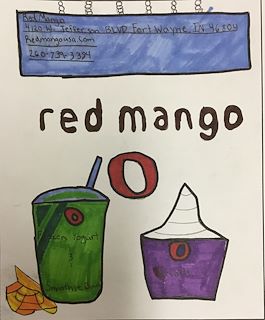 Red Mango
4120 W. Jefferson BLVD Fort Wayne, IN 46804
Redmangousa.com
260-739-3384
red mango
Frozen Yogurt
&
Smoothie